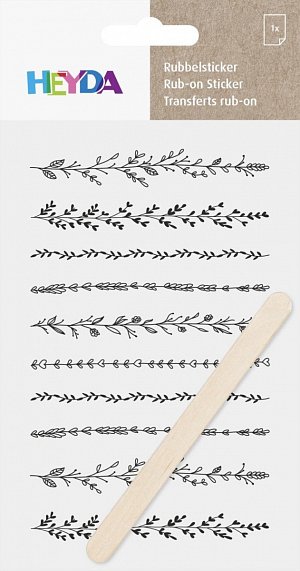 HEYDA
Rubbelsticker
Rub-on Sticker
Transferts rub-on
1x